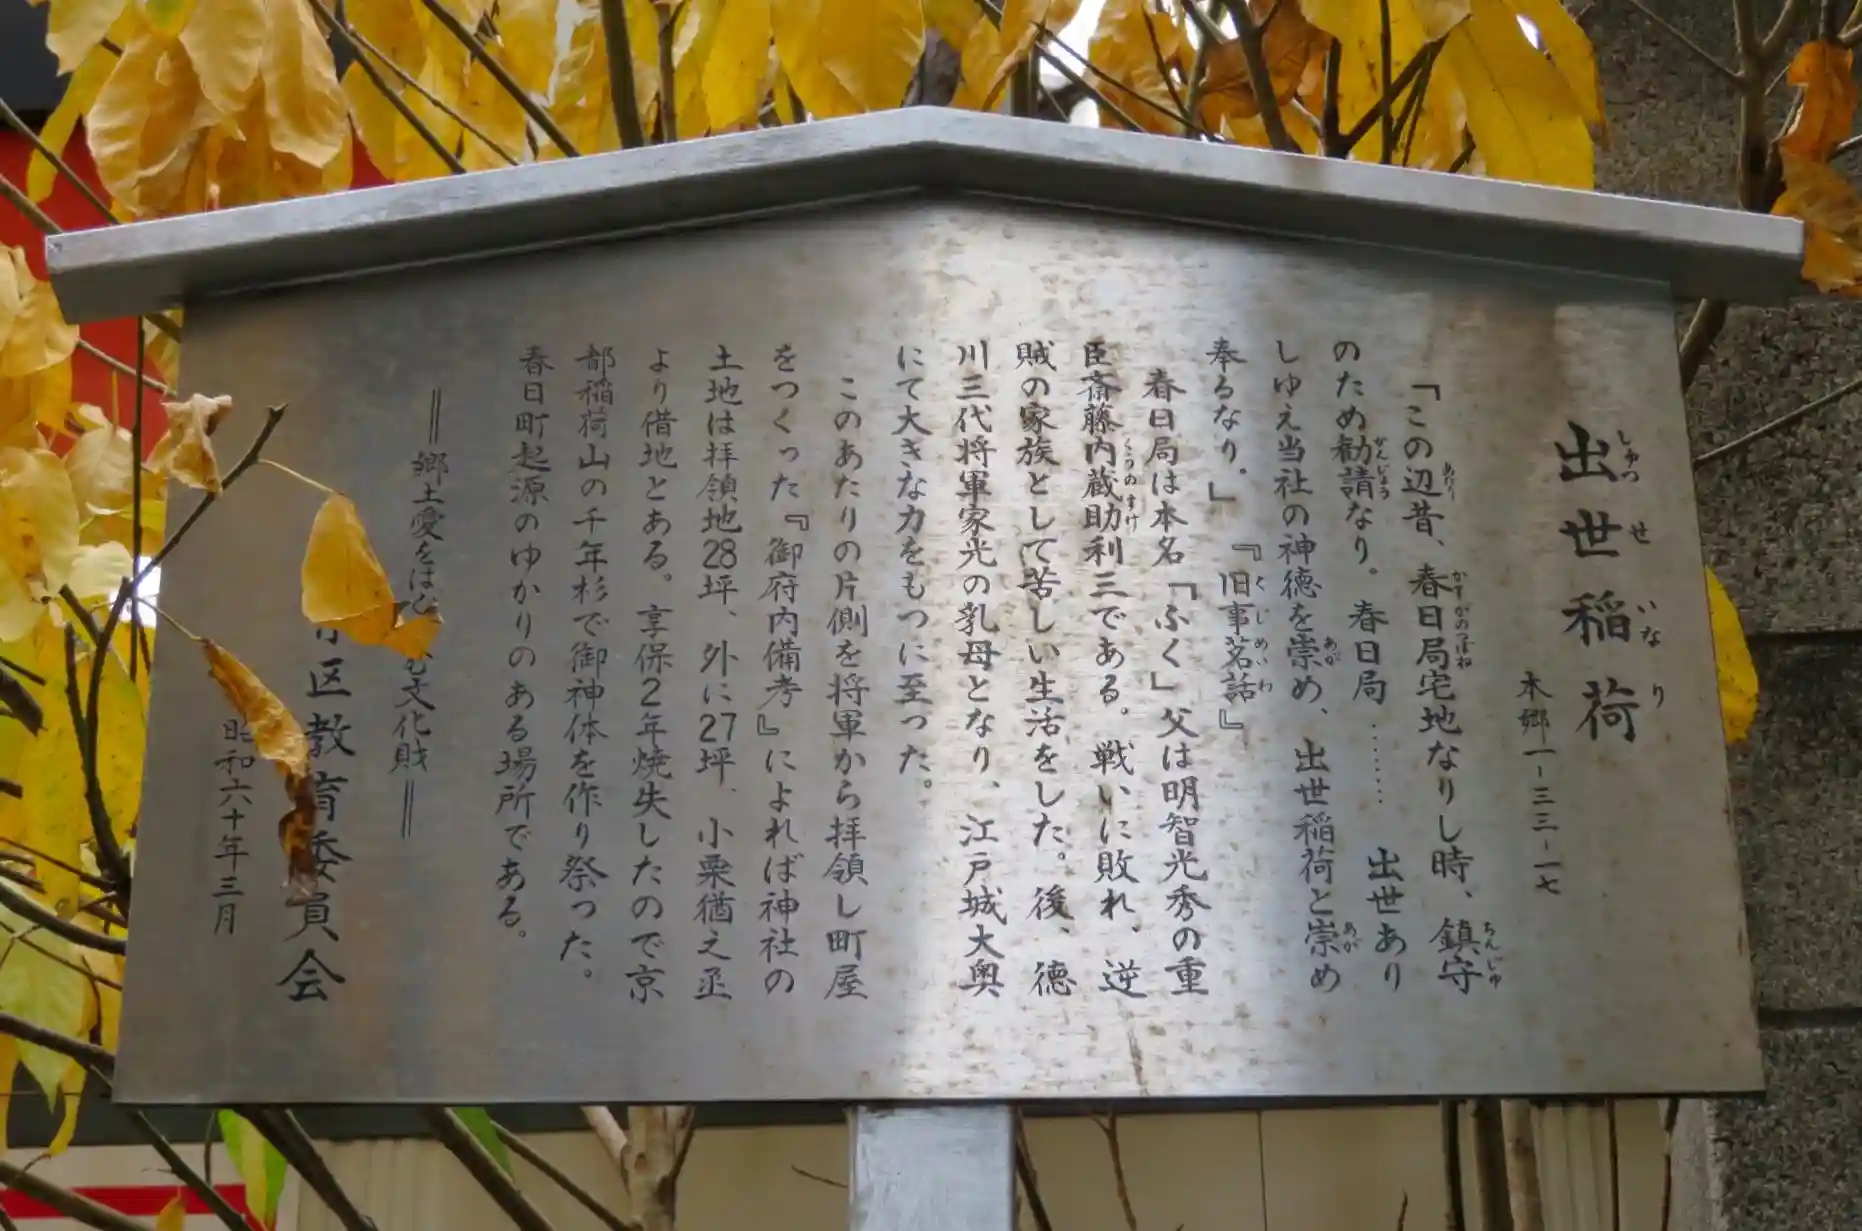 出世稲荷
しゅつせいなり
本郷一-三三-一七
「この辺昔、春日局宅地なりし時、鎮守
あたり かすがのつぼね ちんじゅ
のため勧請なり。春日局………出世あり
かんじょう
しゆえ当社の神徳を崇め、出世稲荷と崇め
あが あが
奉るなり。」『旧事茗話』
くじめいわ
春日局は本名「ふく」父は明智光秀の重
臣斎藤内蔵助利三である。戦いに敗れ、逆
くらのすけ
賊の家族として苦しい生活をした。後、徳
川三代将軍家光の乳母となり、江戸城大奥
にて大きな力をもつに至った。
このあたりの片側を将軍から拝領し町屋
をつくった『御府内備考』によれば神社の
土地は拝領地28坪、外に27坪、小栗猶之丞
より借地とある。享保2年焼失したので京
都稲荷山の千年杉で御神体を作り祭った。
春日町起源のゆかりのある場所である。
＝郷土愛をはぐくむ文化財＝
区教育委員会
昭和六十年三月